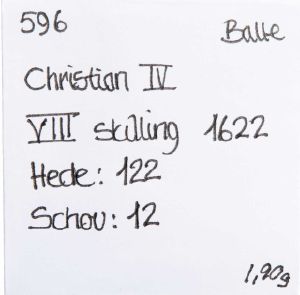 596 Balle
Christian IV
VIII skilling 1622
Hede: 122
Schou: 12
1,90g